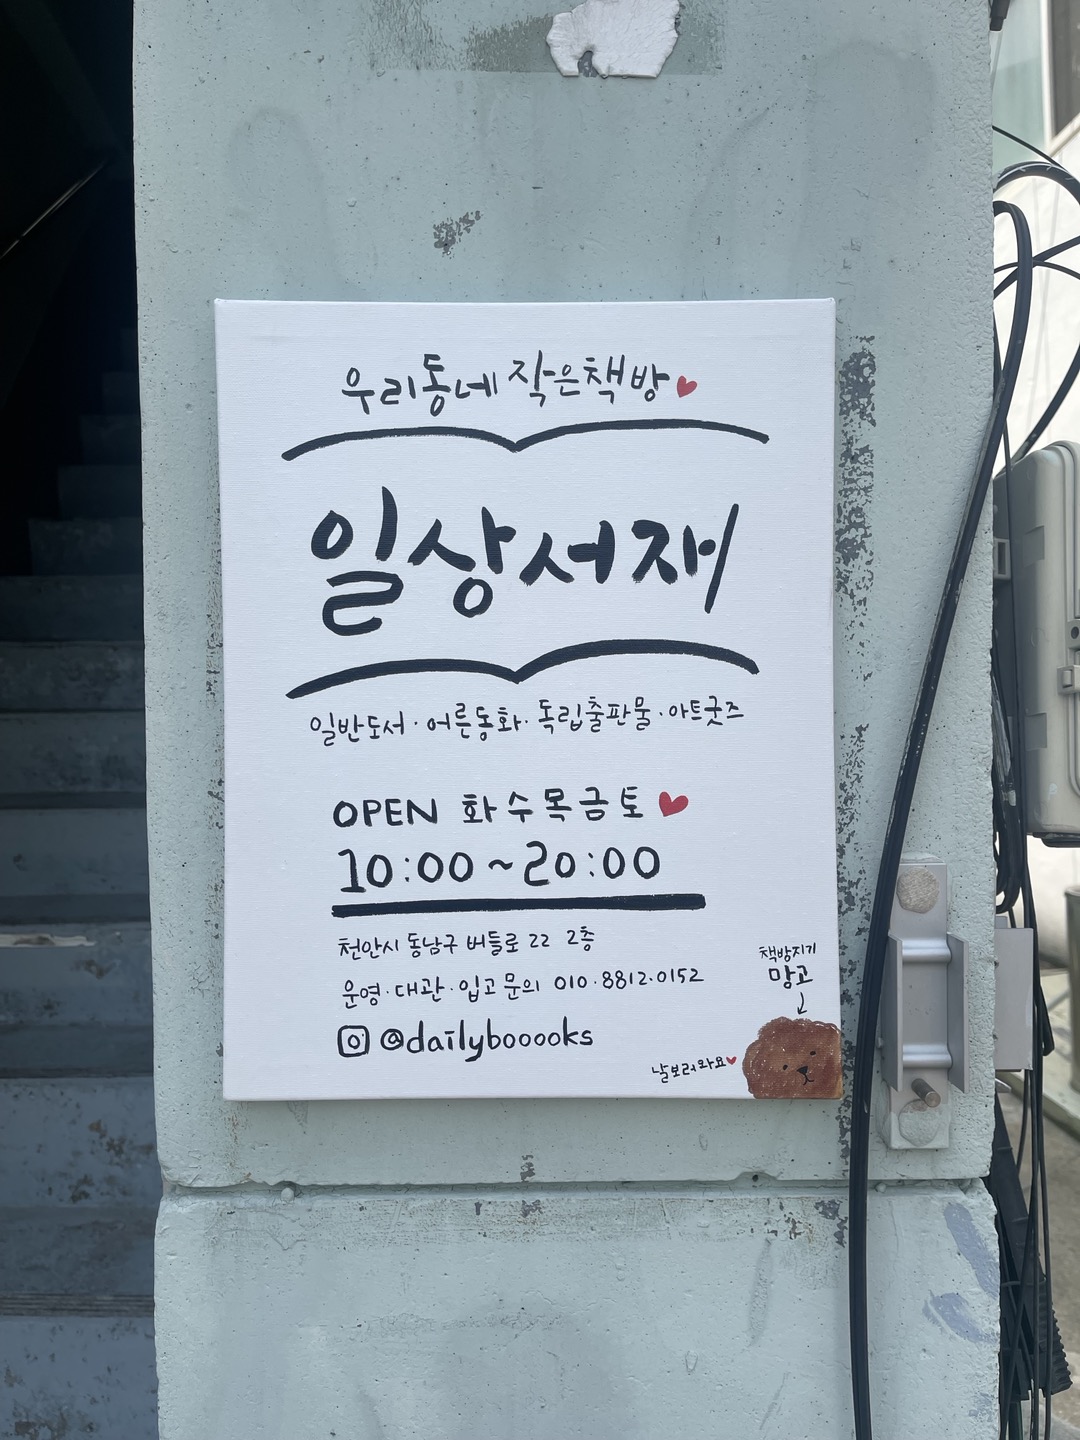 우리동네 작은책방
일상서재
일반도서·어른동화·독립출판물·아트굿즈
OPEN 화수목금토
10:00~20:00
천안시 동남구 버들로 22 2층
운영·대관·입고문의 010·8812·0152
@dailybooooks
책방지기
망고
날보러와요